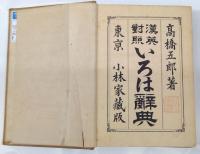 高橋五郎著
漢英對照
いろは辭典
東京 小林家藏版